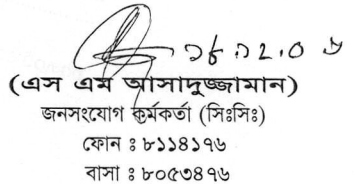 ১৮.১২.০৮
(এস এম আসাদুজ্জামান)
জনসংযোগ কর্মকর্তা (সিঃসিঃ)
ফোন ঃ ৮১১৪১৭৬
বাসা ঃ ৮০৫৩৪৭৬